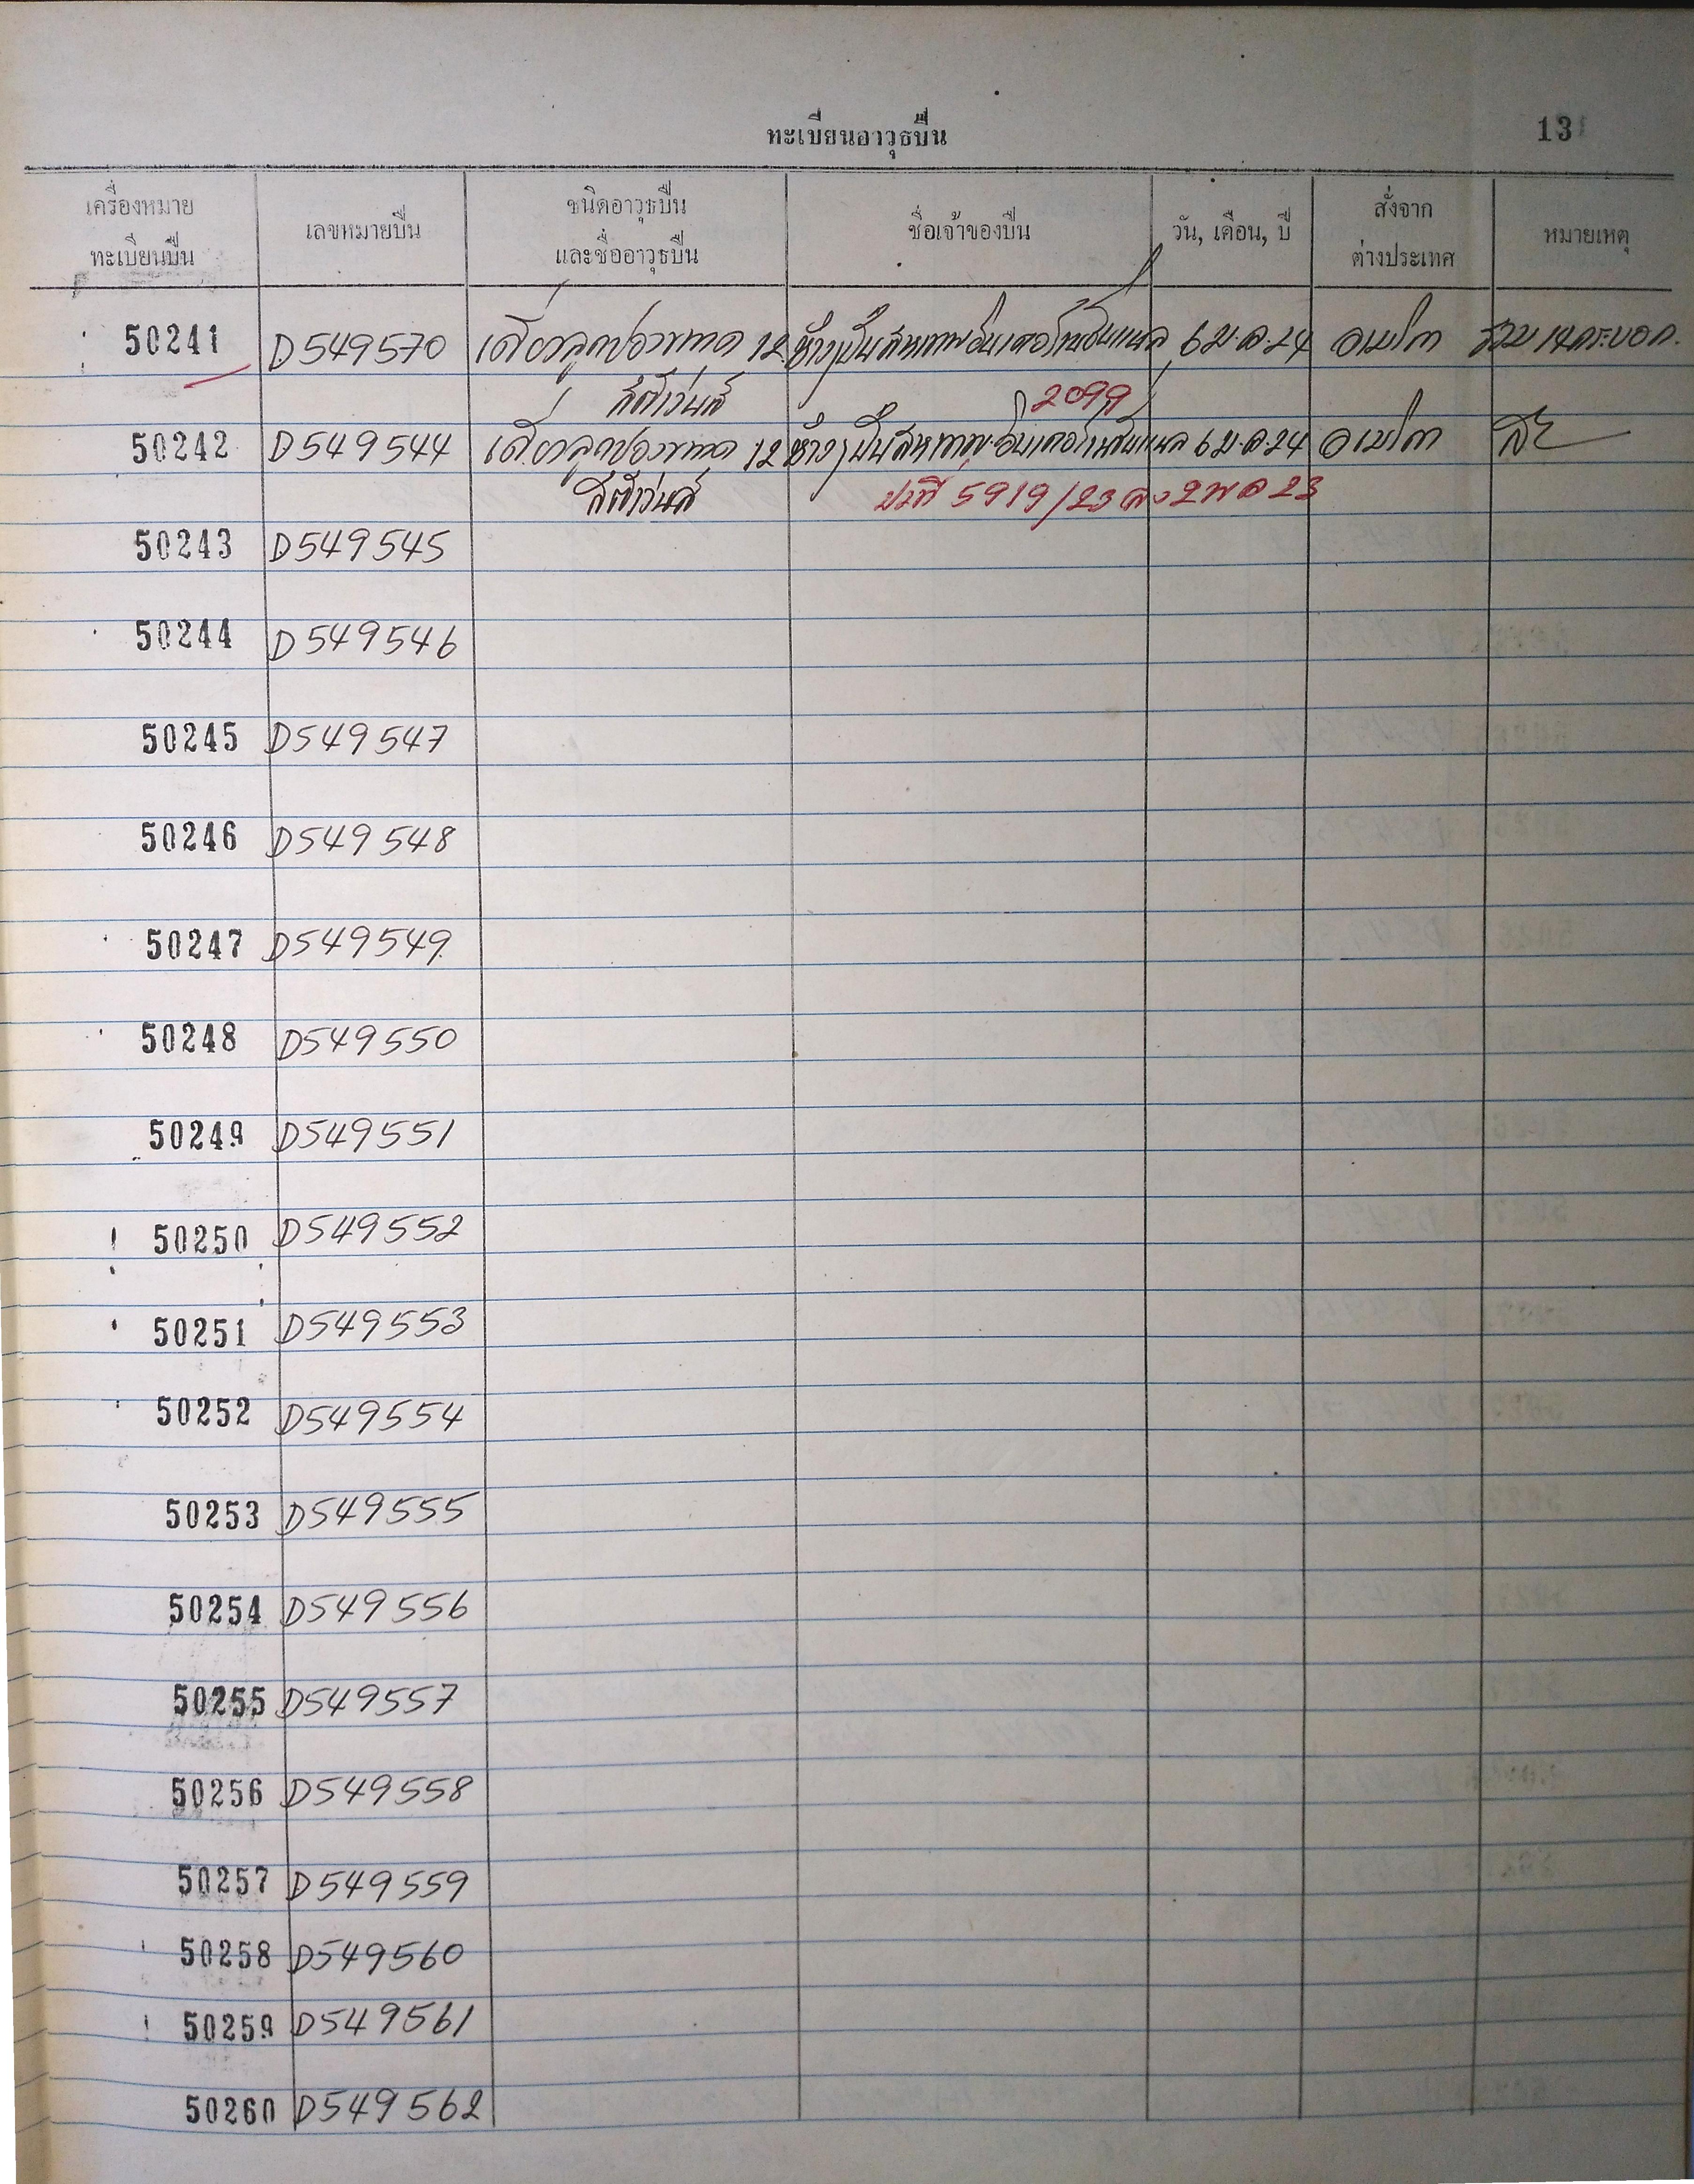 ทะเบียนอาวุธปืน 131
เครื่องหมาย
ทะเบียนปืน
เลขหมายปืน
ชนิดอาวุธปืน
และชื่ออาวุธปืน
ชื่อเจ้าของปืน
วัน, เดือน, ปี
สั่งจาก
ต่างประเทศ
หมายเหตุ
50241 D549570 เดี่ยวลูกซองขนาด 12 ห้างปืนสหเทพอินเตอร์เนชั่นแนล 6 ม.ค.24 อเมริกา รวม 14 กระบอก.
2099
50242 D549544 เดี่ยวลูกซองขนาด 12 ห้างปืนสหเทพอินเตอร์เนชั่นแนล 6 ม.ค.24 อเมริกา
ป.2ที่ 5919/23 ลง 2 พ ค 23
50243 D549545
50244 D549546
50245 D549547
50246 D549548
50247 D549549
50248 D549550
50249 D549551
50250 D549552
50251 D549553
50252 D549554
50253 D549555
50254 D549556
50255 D549557
50256 D549558
50257 D549559
50258 D549560
50259 D549561
50260 D549562